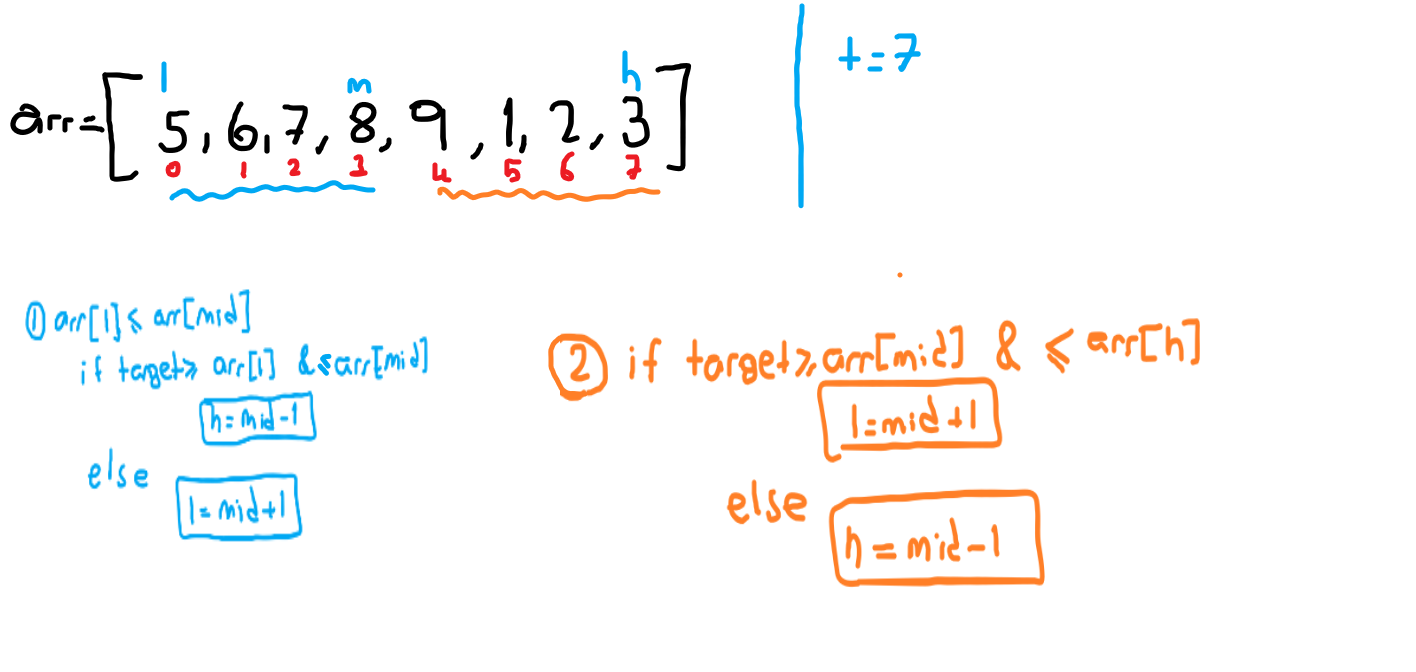 l m h
arr=[5, 6, 7, 8, 9, 1, 2, 3]
0 1 2 3 4 5 6 7
t=7
① arr[l]⩽ arr[mid]
if target⩾ arr[l] &⩽arr[mid]
h=mid-1
else
l=mid+1
② if target⩾arr[mid] & ⩽ arr[h]
l=mid+1
else
h=mid-1